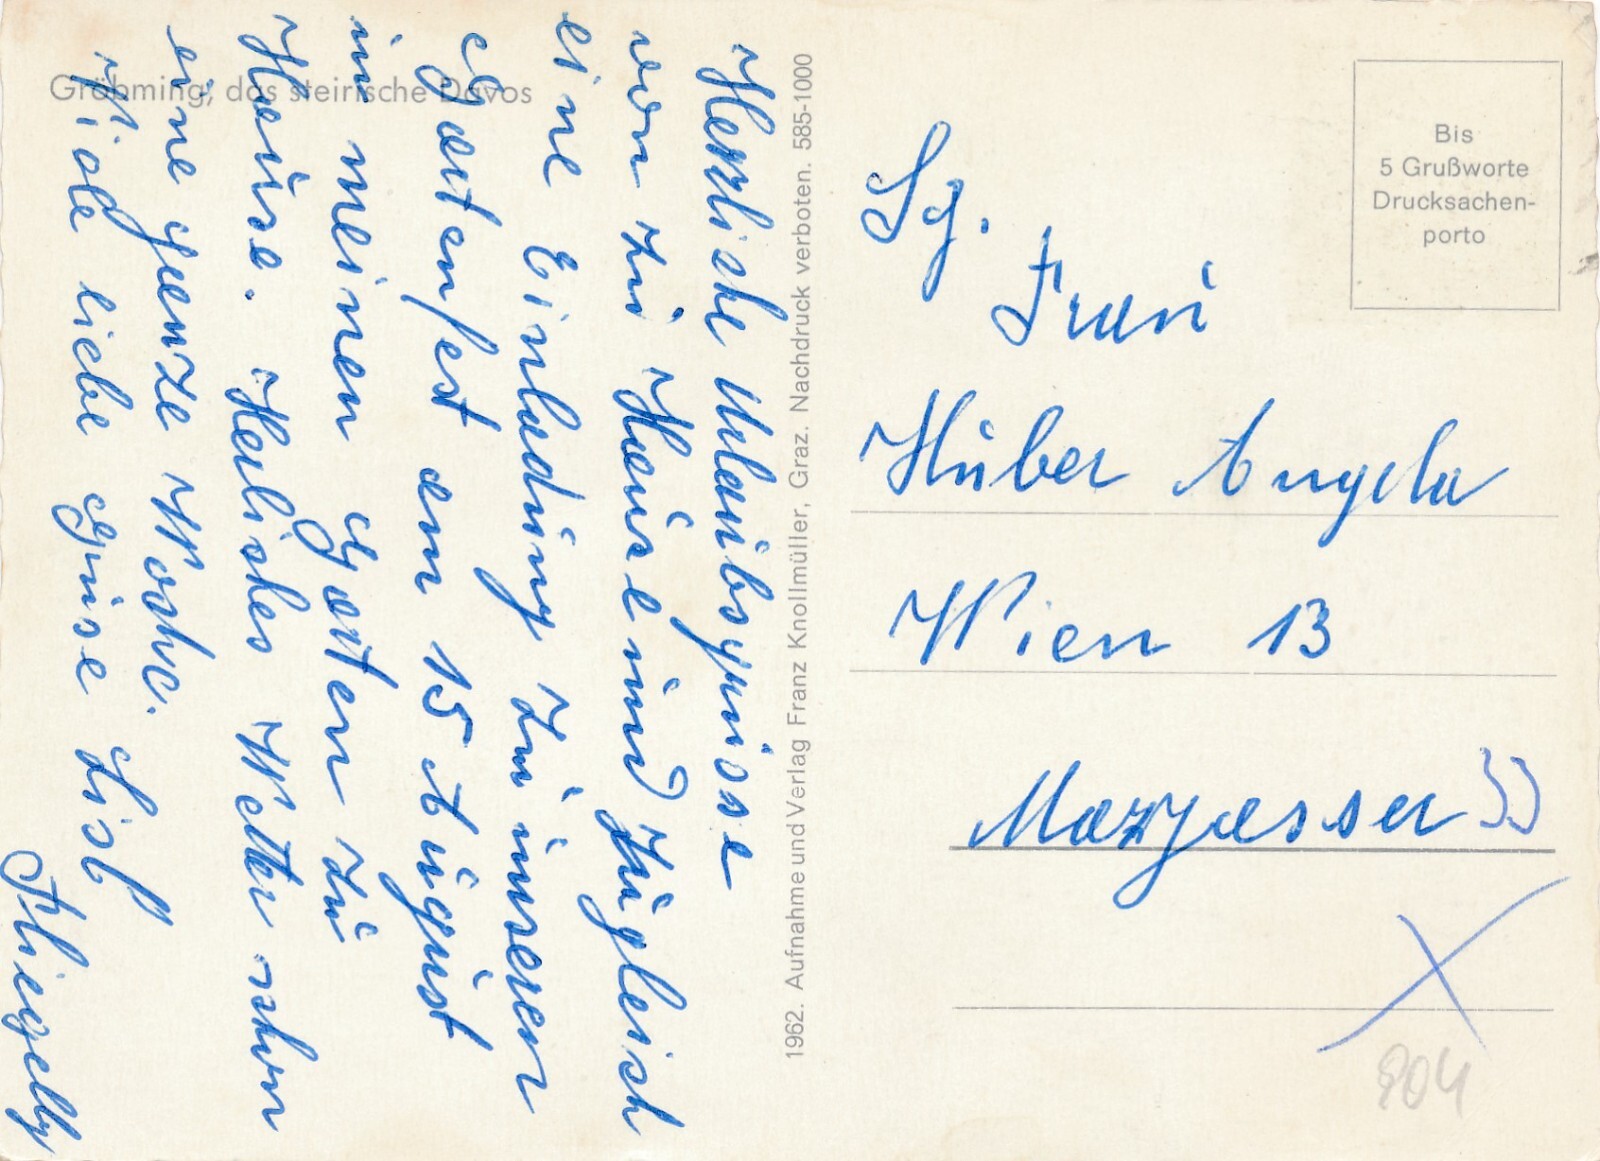 Gröbming, das steirische Davos
Herzliche Urlaubsgrüsse
von zu Hause und zugleich
eine Einladung zu unserer
Gartenfest am 15 August
in meinen Garten zu
Hause. Herliches Wetter schon
eine ganze Woche.
Viele liebe Grüse Lisl
1962. Aufnahme und Verlag Franz Knollmüller, Graz. Nachdruck verboten. 585-1000
Bis
5 Grußworte
Drucksachen-
porto
Sg.
Frau
Huber Angela
Wien 13
904